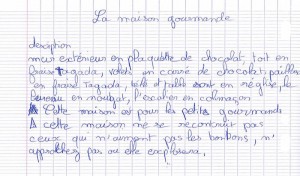 La maison gourmande
desription
murs extérieur en plaquette de chocolat, toit en
fraise Tagada, volets en carré de chocolat, paillasson
en fraise Tagada, table en réglise, le
bureau en nougat, l'escalier en colimaçon
Cette maison est pour les petits gourmands
cette maison ne se reconstruit pas
ceux qui n'aiment pas les bonbons, n'
approchez pas ou elle explosera.